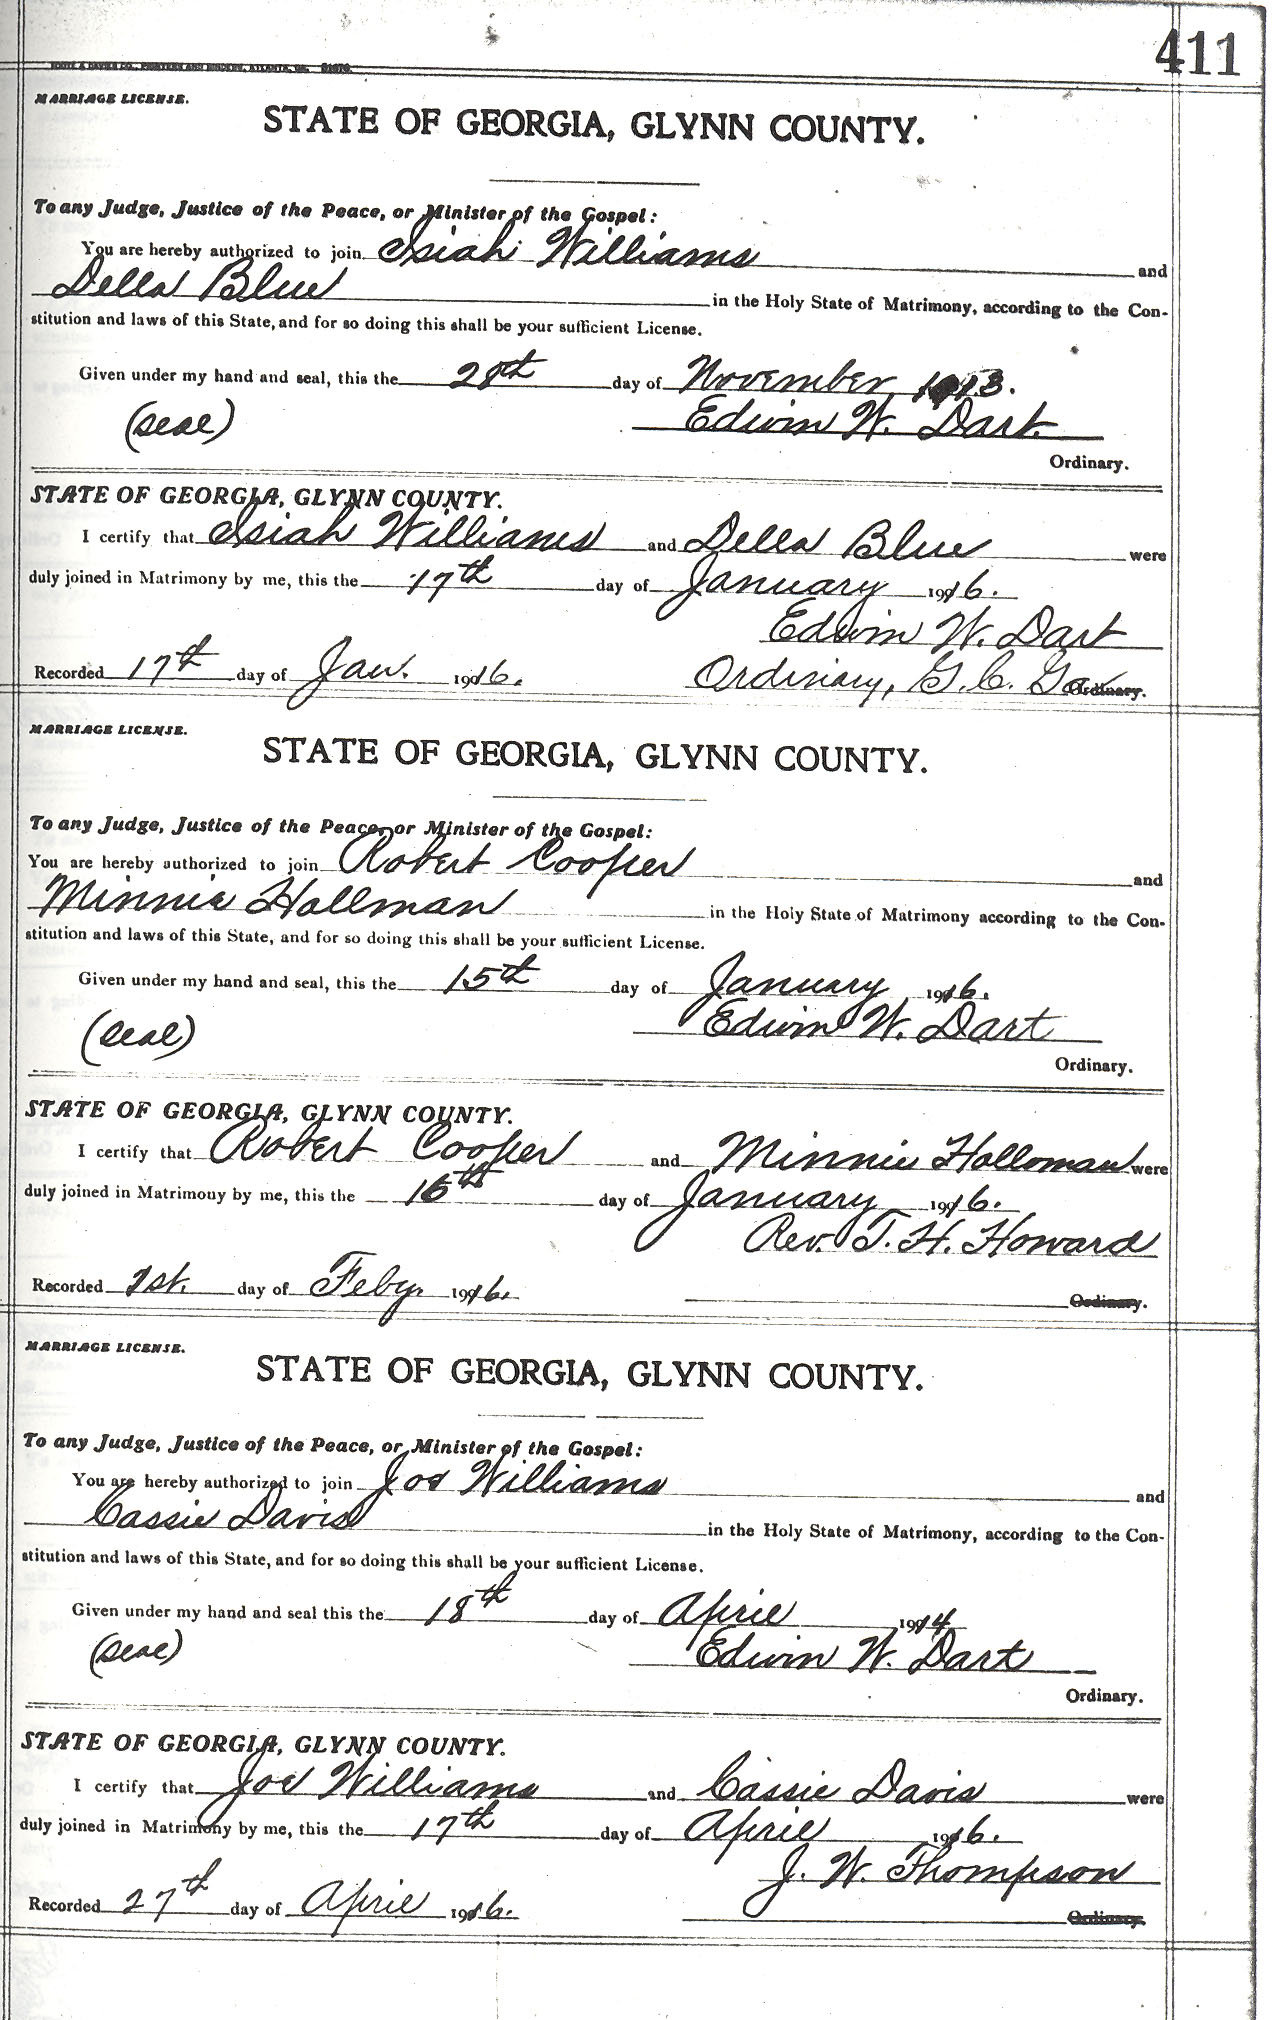 411
FOOTE & DAVIES CO., PRINTERS AND BINDERS, ATLANTA, GA.
MARRIAGE LICENSE.
STATE OF GEORGIA, GLYNN COUNTY.
To any Judge, Justice of the Peace, or Minister of the Gospel:
You are hereby authorized to join Isiah Williams and
Della Blue in the Holy State of Matrimony, according to the Con-
stitution and laws of this State, and for so doing this shall be your sufficient License.
Given under my hand and seal, this the 28th day of November 1913.
(seal) Edwin W. Dart
Ordinary.
STATE OF GEORGIA, GLYNN COUNTY.
I certify that Isiah Williams and Della Blue were
duly joined in Matrimony by me, this the 17th day of January 1916.
Edwin W. Dart
Recorded 17th day of Jan. 1916. Ordinary, G.C. Ga. Ordinary.
MARRIAGE LICENSE.
STATE OF GEORGIA, GLYNN COUNTY.
To any Judge, Justice of the Peace, or Minister of the Gospel:
You are hereby authorized to join Robert Cooper and
Minnie Hollman in the Holy State of Matrimony according to the Con-
stitution and laws of this State, and for so doing this shall be your sufficient License.
Given under my hand and seal, this the 15th day of January 1916.
(seal) Edwin W. Dart
Ordinary.
STATE OF GEORGIA, GLYNN COUNTY.
I certify that Robert Cooper and Minnie Holloman were
duly joined in Matrimony by me, this the 16th day of January 1916.
Rev. T. H. Howard
Recorded 1st. day of Feby. 1916. Ordinary.
MARRIAGE LICENSE.
STATE OF GEORGIA, GLYNN COUNTY.
To any Judge, Justice of the Peace, or Minister of the Gospel:
You are hereby authorized to join Joe Williams and
Cassie Davis in the Holy State of Matrimony, according to the Con-
stitution and laws of this State, and for so doing this shall be your sufficient License.
Given under my hand and seal this the 18th day of April 1914
(seal) Edwin W. Dart
Ordinary.
STATE OF GEORGIA, GLYNN COUNTY.
I certify that Joe Williams and Cassie Davis were
duly joined in Matrimony by me, this the 17th day of April 1916.
J. W. Thompson
Recorded 27th day of April 1916. Ordinary.